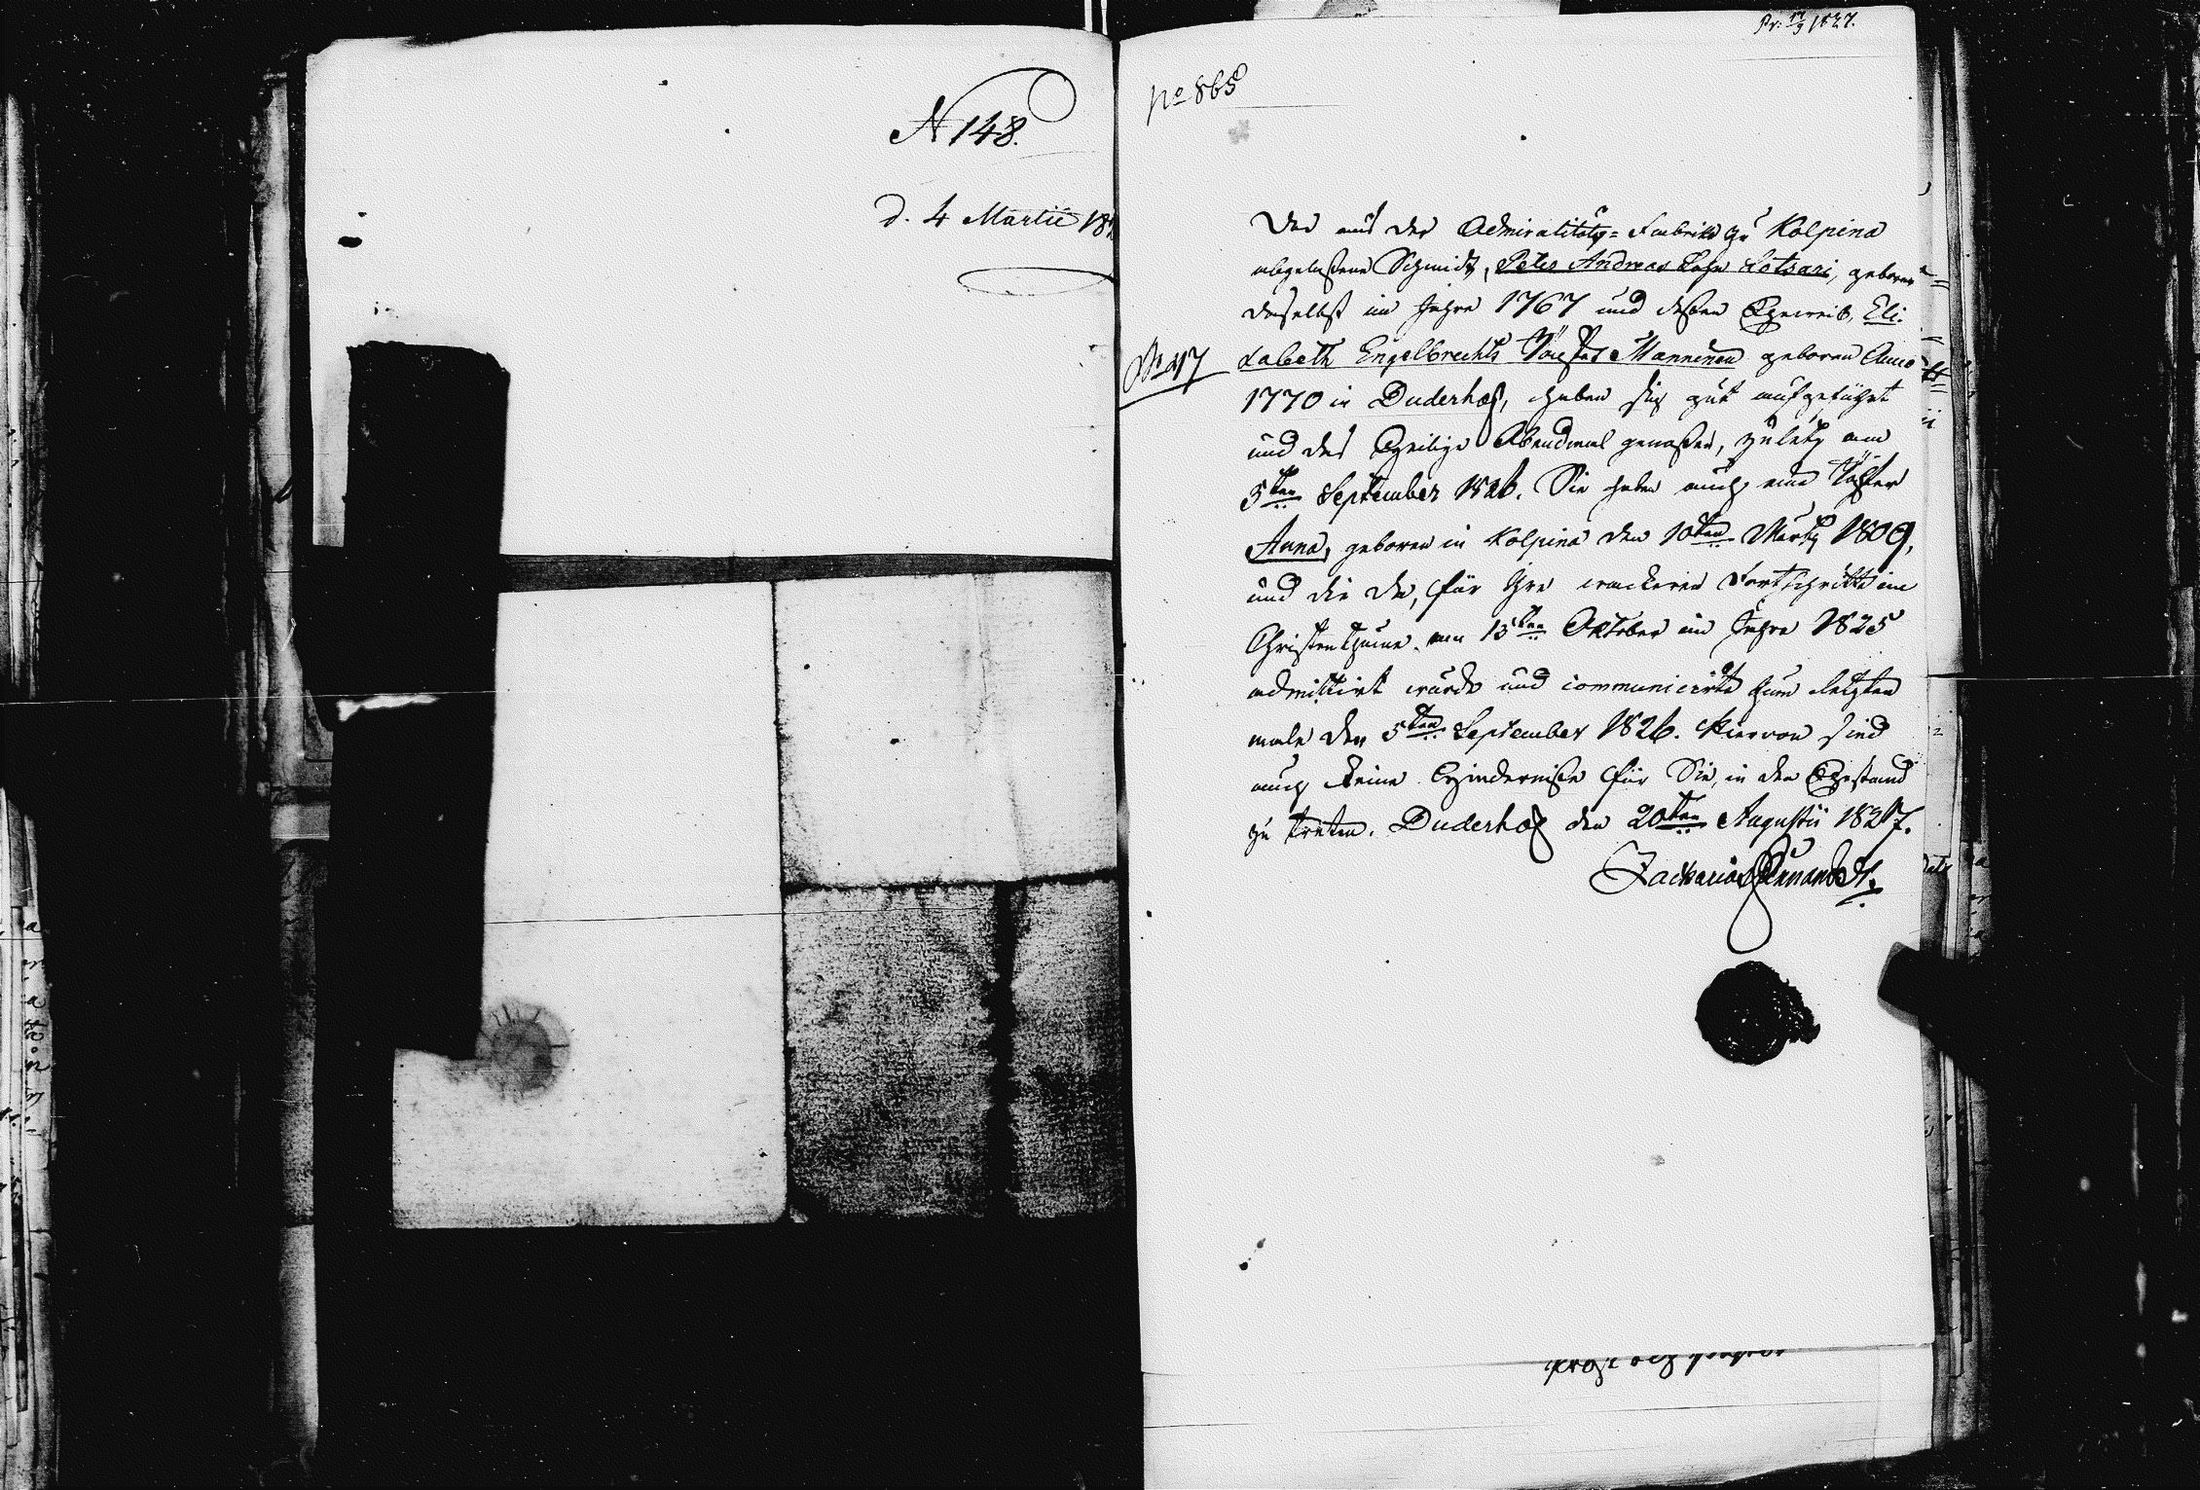 N 148.
d. 4 Martii 18
Pr: 17/9 1827.
No 865
Der aus der Admiralitäts=Fabrike zu Kolpina
abgelaßene Schmidt, Peter Andreas Sohn Lotsari, geboren
daselbst im Jahre 1767 und deßen Eheweib, Eli-
No 47
sabeth Engelbrechts Tochter Manninen geboren Anno
1770 in Duderhof, haben sich gut aufgeführt
und das Heilige Abendmal genoßen, zuletz am
5ten September 1826. Sie haben auch eine Tochter
Anna, geboren in Kolpina den 10ten Martz 1809,
und die da, für ihre wackeren Fortschritte im
Christenthume am 15ten Oktober im Jahre 1825
admittirt wurde und communicirte zum letzten
male den 5ten September 1826. Hiervon sind
auch keine Hinderniße für Sie, in den Ehestand
zu treten. Duderhof den 20ten Augustii 1827.
Zacharias